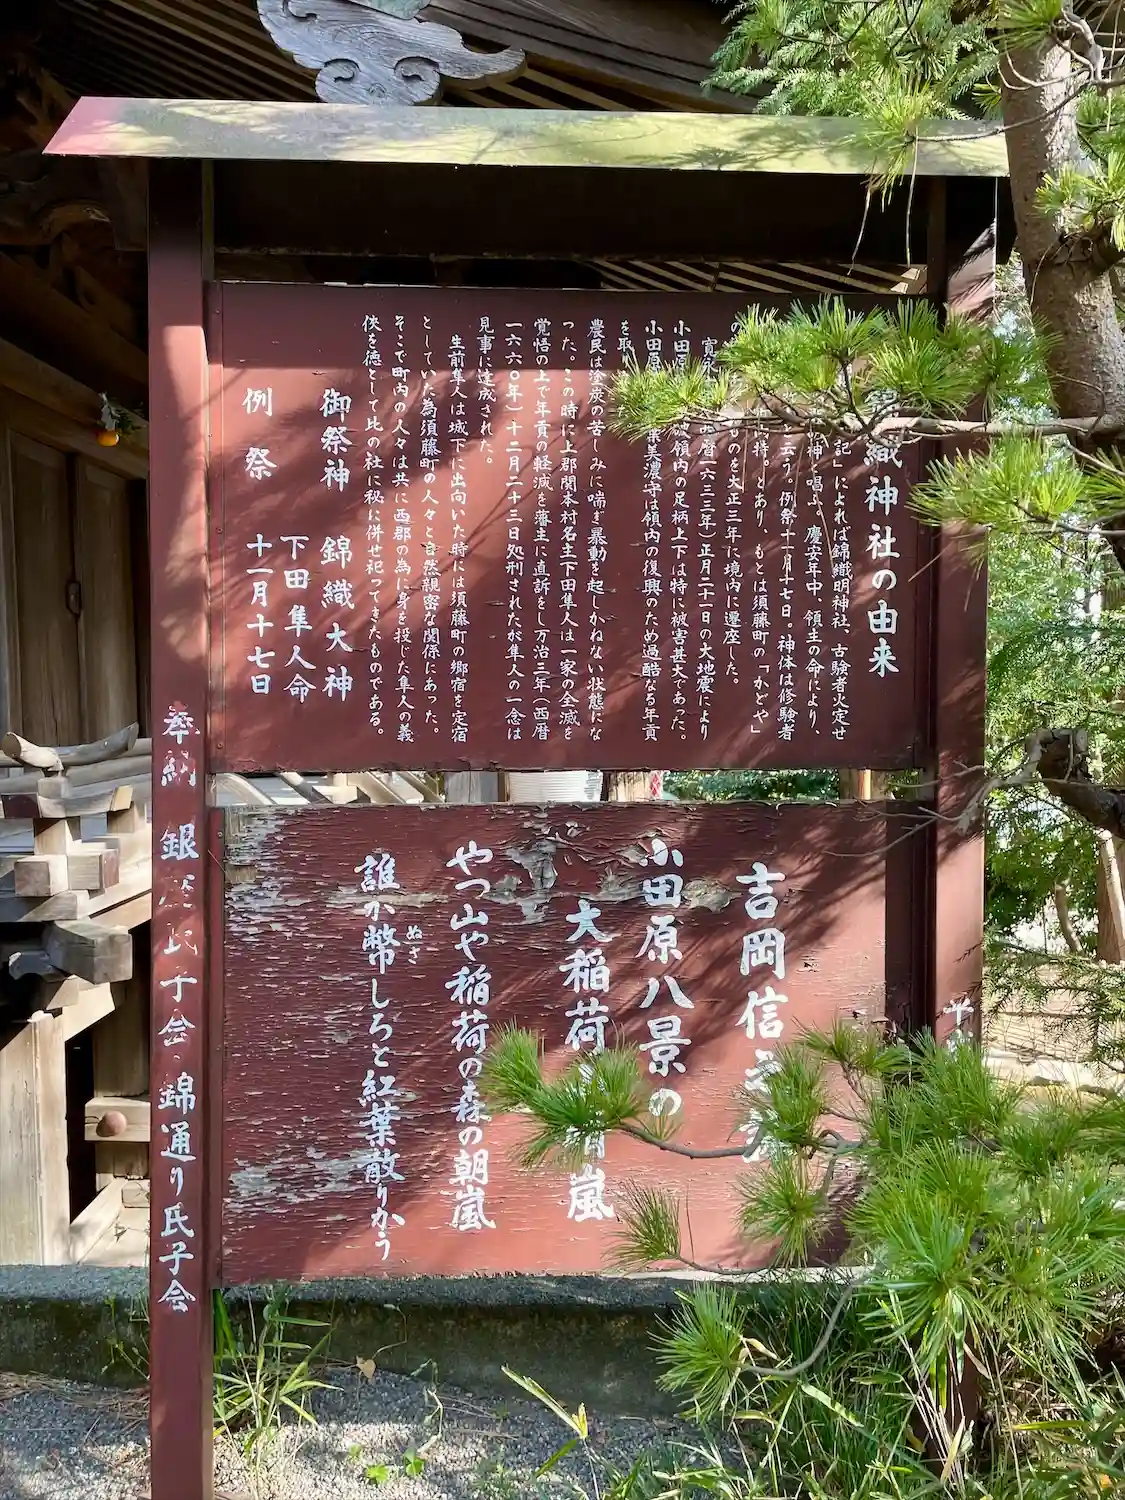 織神社の由来
記」によれば錦織明神社、古驗者火定せ
神と唱ふ。慶安年中、領主の命により、
云う。例祭十一月十七日。神体は修驗者
持。とあり、もとは須藤町の「かどや」
ものを大正三年に境内に遷座した。
寛永 暦一六三三年)正月二十一日の大地震により
小田原 領内の足柄上下は特に被害甚大であった。
小田原 葉美濃守は領内の復興のため過酷なる年貢
を取
農民は塗炭の苦しみに喘ぎ暴動を起しかねない状態にな
った。この時に上郡関本村名主下田隼人は一家の全滅を
覚悟の上で年貢の軽減を藩主に直訴をし万治三年(西暦
一六六〇年)十二月二十三日処刑されたが隼人の一念は
見事に達成された。
生前隼人は城下に出向いた時には須藤町の郷宿を定宿
としていた為須藤町の人々と自然親密な関係にあった。
そこで町内の人々は共に西郡の為に身を投じた隼人の義
侠を徳として比の社に秘に併せ祀ってきたものである。
御祭神 錦織大神
下田隼人命
例祭 十一月十七日
吉岡信
小田原八景の
大稲荷 嵐
やつ山や稲荷の森の朝嵐
誰か幣しろと紅葉散りかう
ぬさ
奉納 銀座氏子会・錦通り氏子会
平